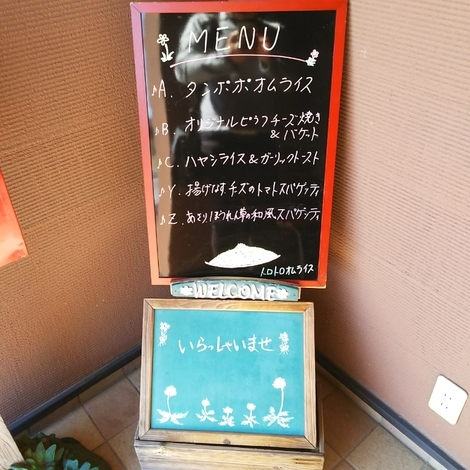 MENU
♪A. タンポポオムライス
♪B. オリジナルピラフチーズ焼き
& バゲット
♪C. ハヤシライス&ガーリックトースト
♪Y. 揚げなすチーズのトマトスパゲッティ
♪Z. あさりほうれん草の和風スパゲッティ
トロトロオムライス
WELCOME
いらっしゃいませ